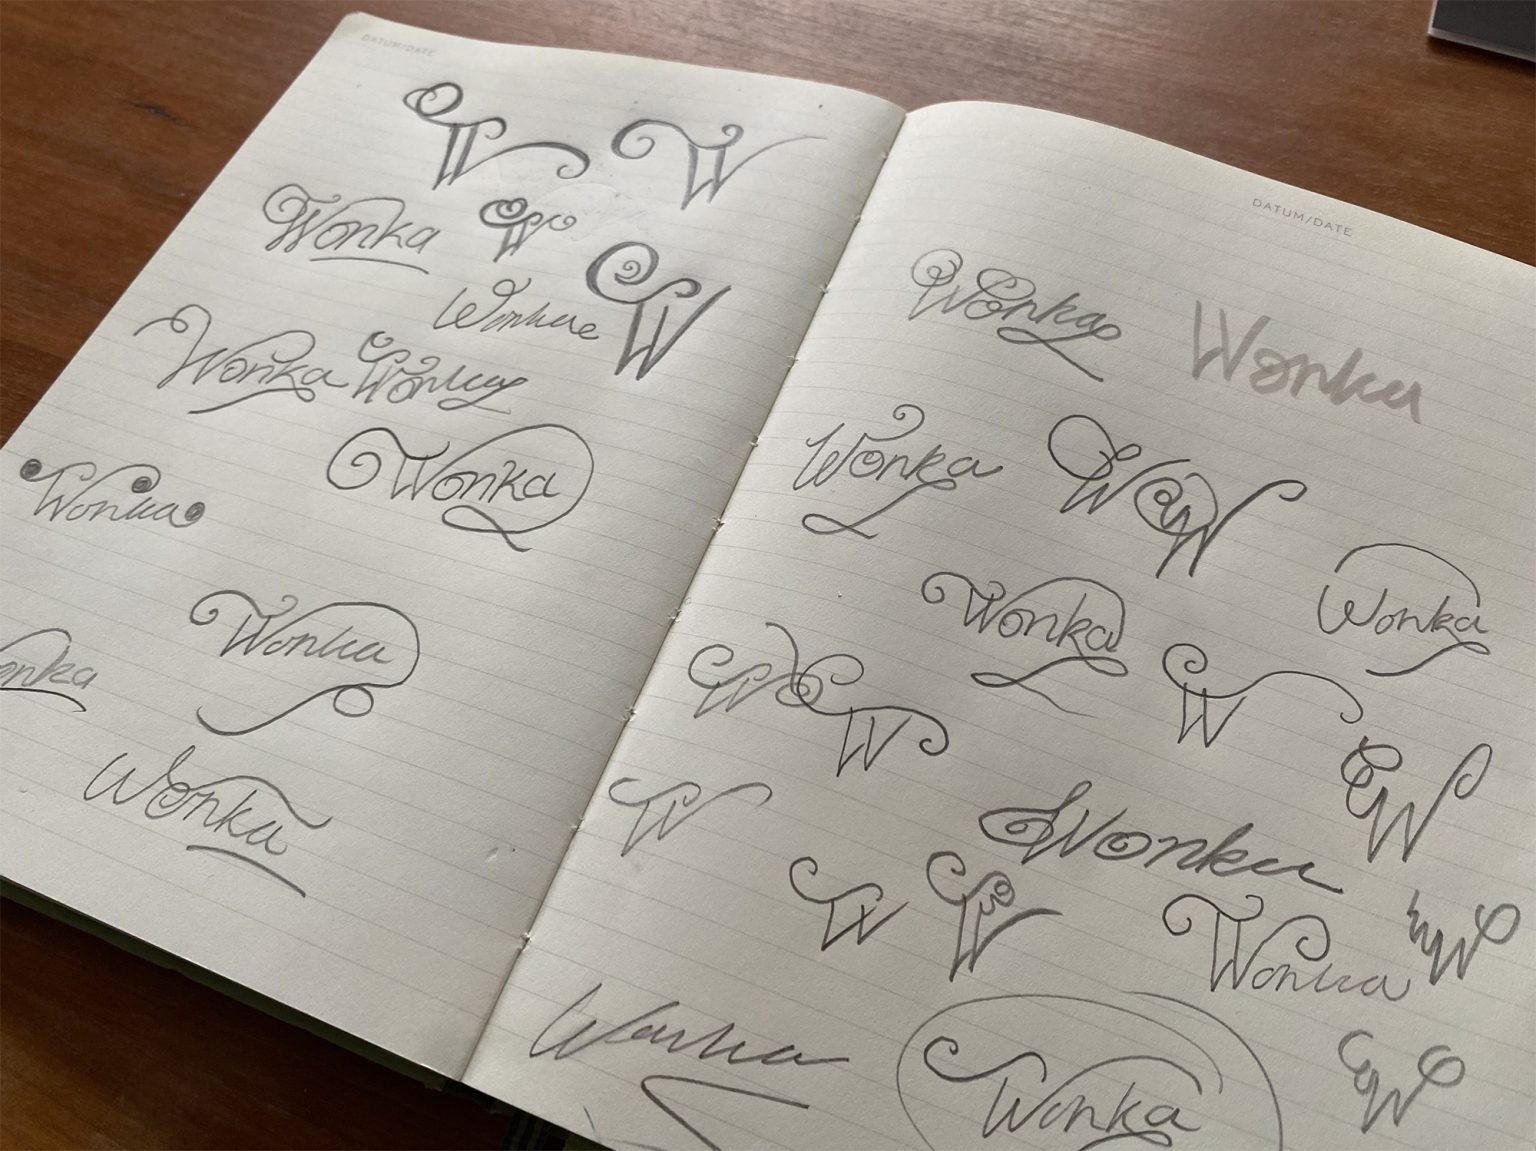 DATUM/DATE
W W
Wonka W
W
Wonka Wonka
Wonka
Wonka
Wonka
onka
Wonka
DATUM/DATE
Wonka
Wonka
Wonka
W W
Wonka
Wonka
W
W W
W
W
Wonka
W
W
Wonka
W
Wonka
Wonka
W